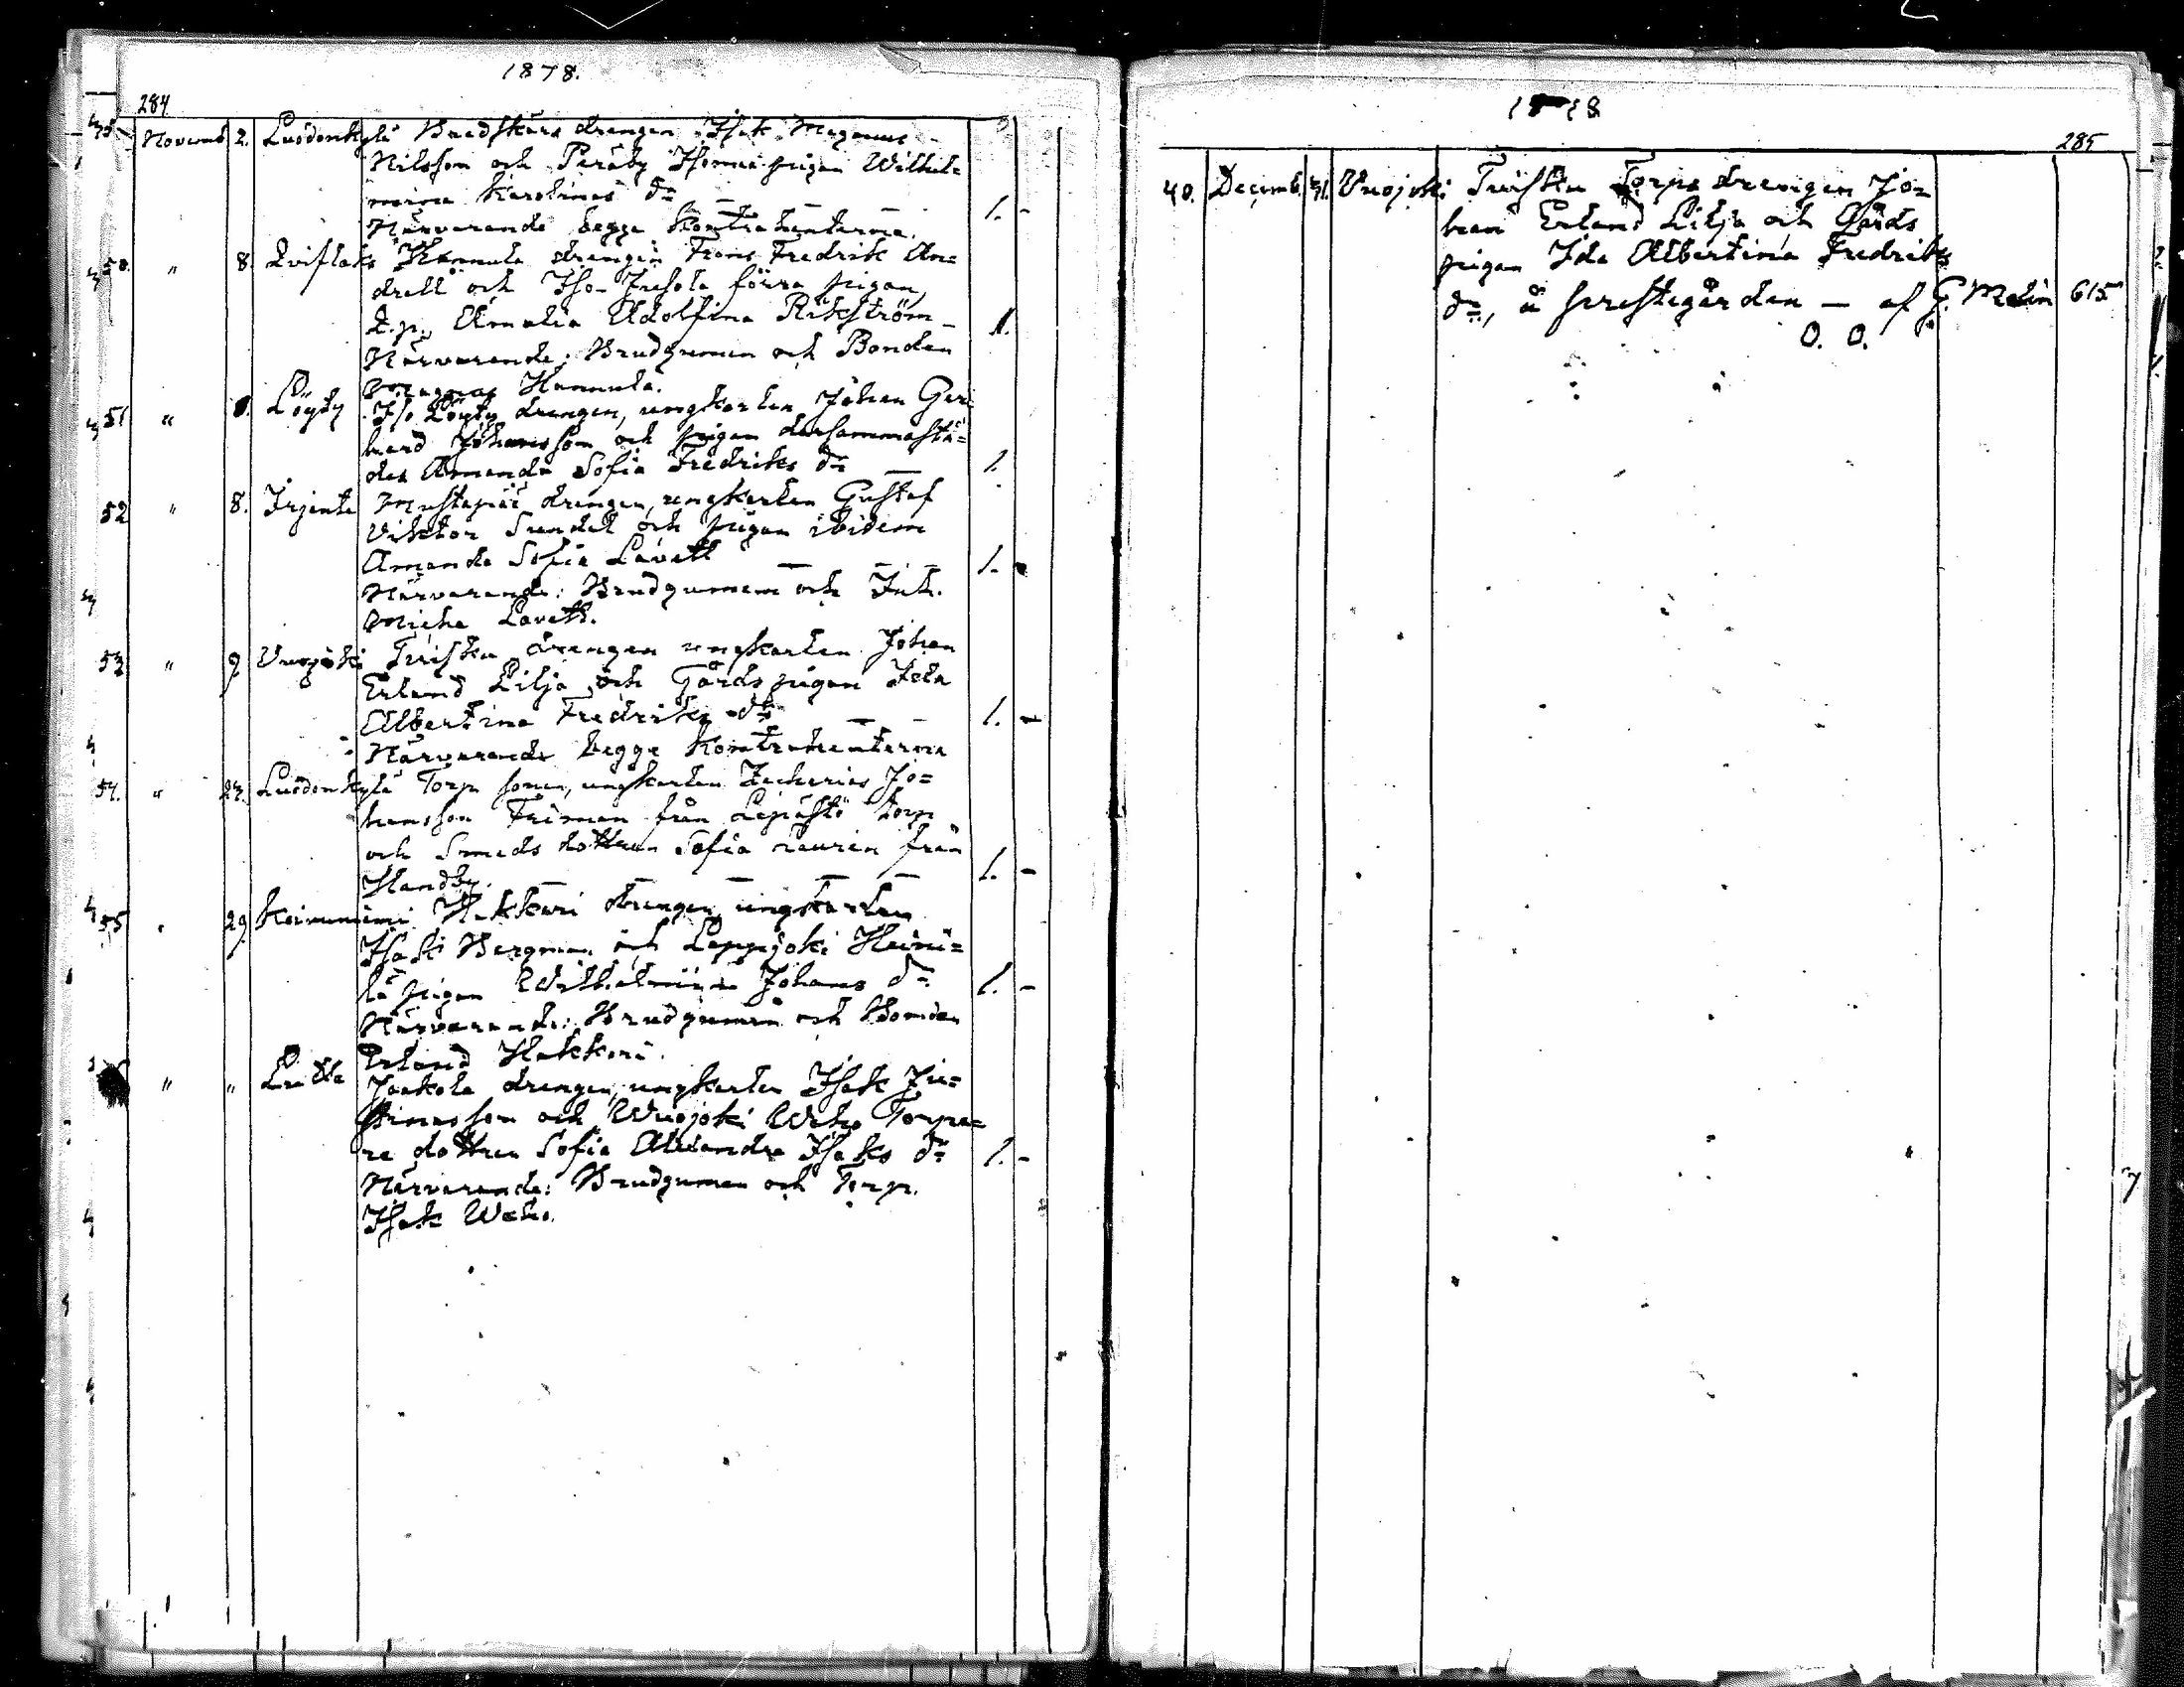 1878.
284
Novemb 2. Luodonkylä Bredskärs drengen Isak Magnus
Nilsson och Peräby Isomaa pigan Wilhel=
mina Karolina dr 1. -
Närvarande begge Kontrahenterna.
50. " 8. Kviflaks Hannula drengen Frans Fredrik An=
drell och Iso- förra pigan,
Amalia Adolfina Rikström - 1.
Närvarande: Brudgumen och Bonden
Magnus Hannula.
51 " Löyty Iso Löyty drengen, ungkarlen Johan Ger=
hard Johansson och pigan dersammastä=
des Amanda Sofia Fredriks dr — 1.
52 " 8. Irjente drengen, ungkarlen Gustaf
Viktor Sundel och pigan ibidem
Amanda Sofia Laveth — — — 1. -
Närvarande: Brudgumen och Inh.
Micha Laveth.
53 " 9 Vuojoki Turisku drengen ungkarlen Johan
Erland Lilja och Gårds pigan Ida
Albertina Fredriks dr — — 1. -
Närvarande begge Kontrahenterna
54. " 24. Luodonkylä Torp sonen, ungkarlen Zacharias Jo=
hansson Friman från Lepistö torp
och Smeds dottren Sofia Laurén från
Handby. — — — 1. -
55 " 29 Koivuniemi Hakkuri drengen ungkarlen
Isak Bergman och Leppjoki Heini=
lä pigan Wilhelmiina Johans dr 1. -
Närvarande: Brudgumen och Bonden
Erland Hakkuri.
" " Jaakola drengen, ungkarlen Isak
och Wuojoki Weho Torpa=
re dottren Sofia Alexandra Isaks dr 1. -
Närvarande: Brudgumen och Torp.
Isak Weho.
1878
285
40. Decemb. 31. Vuojoki Turisku Torps drengen Jo=
han Erland Lilja och Gårds
pigan Ida Albertina Fredriks
dr, å prestegården — af G. Malin 615
O. O.